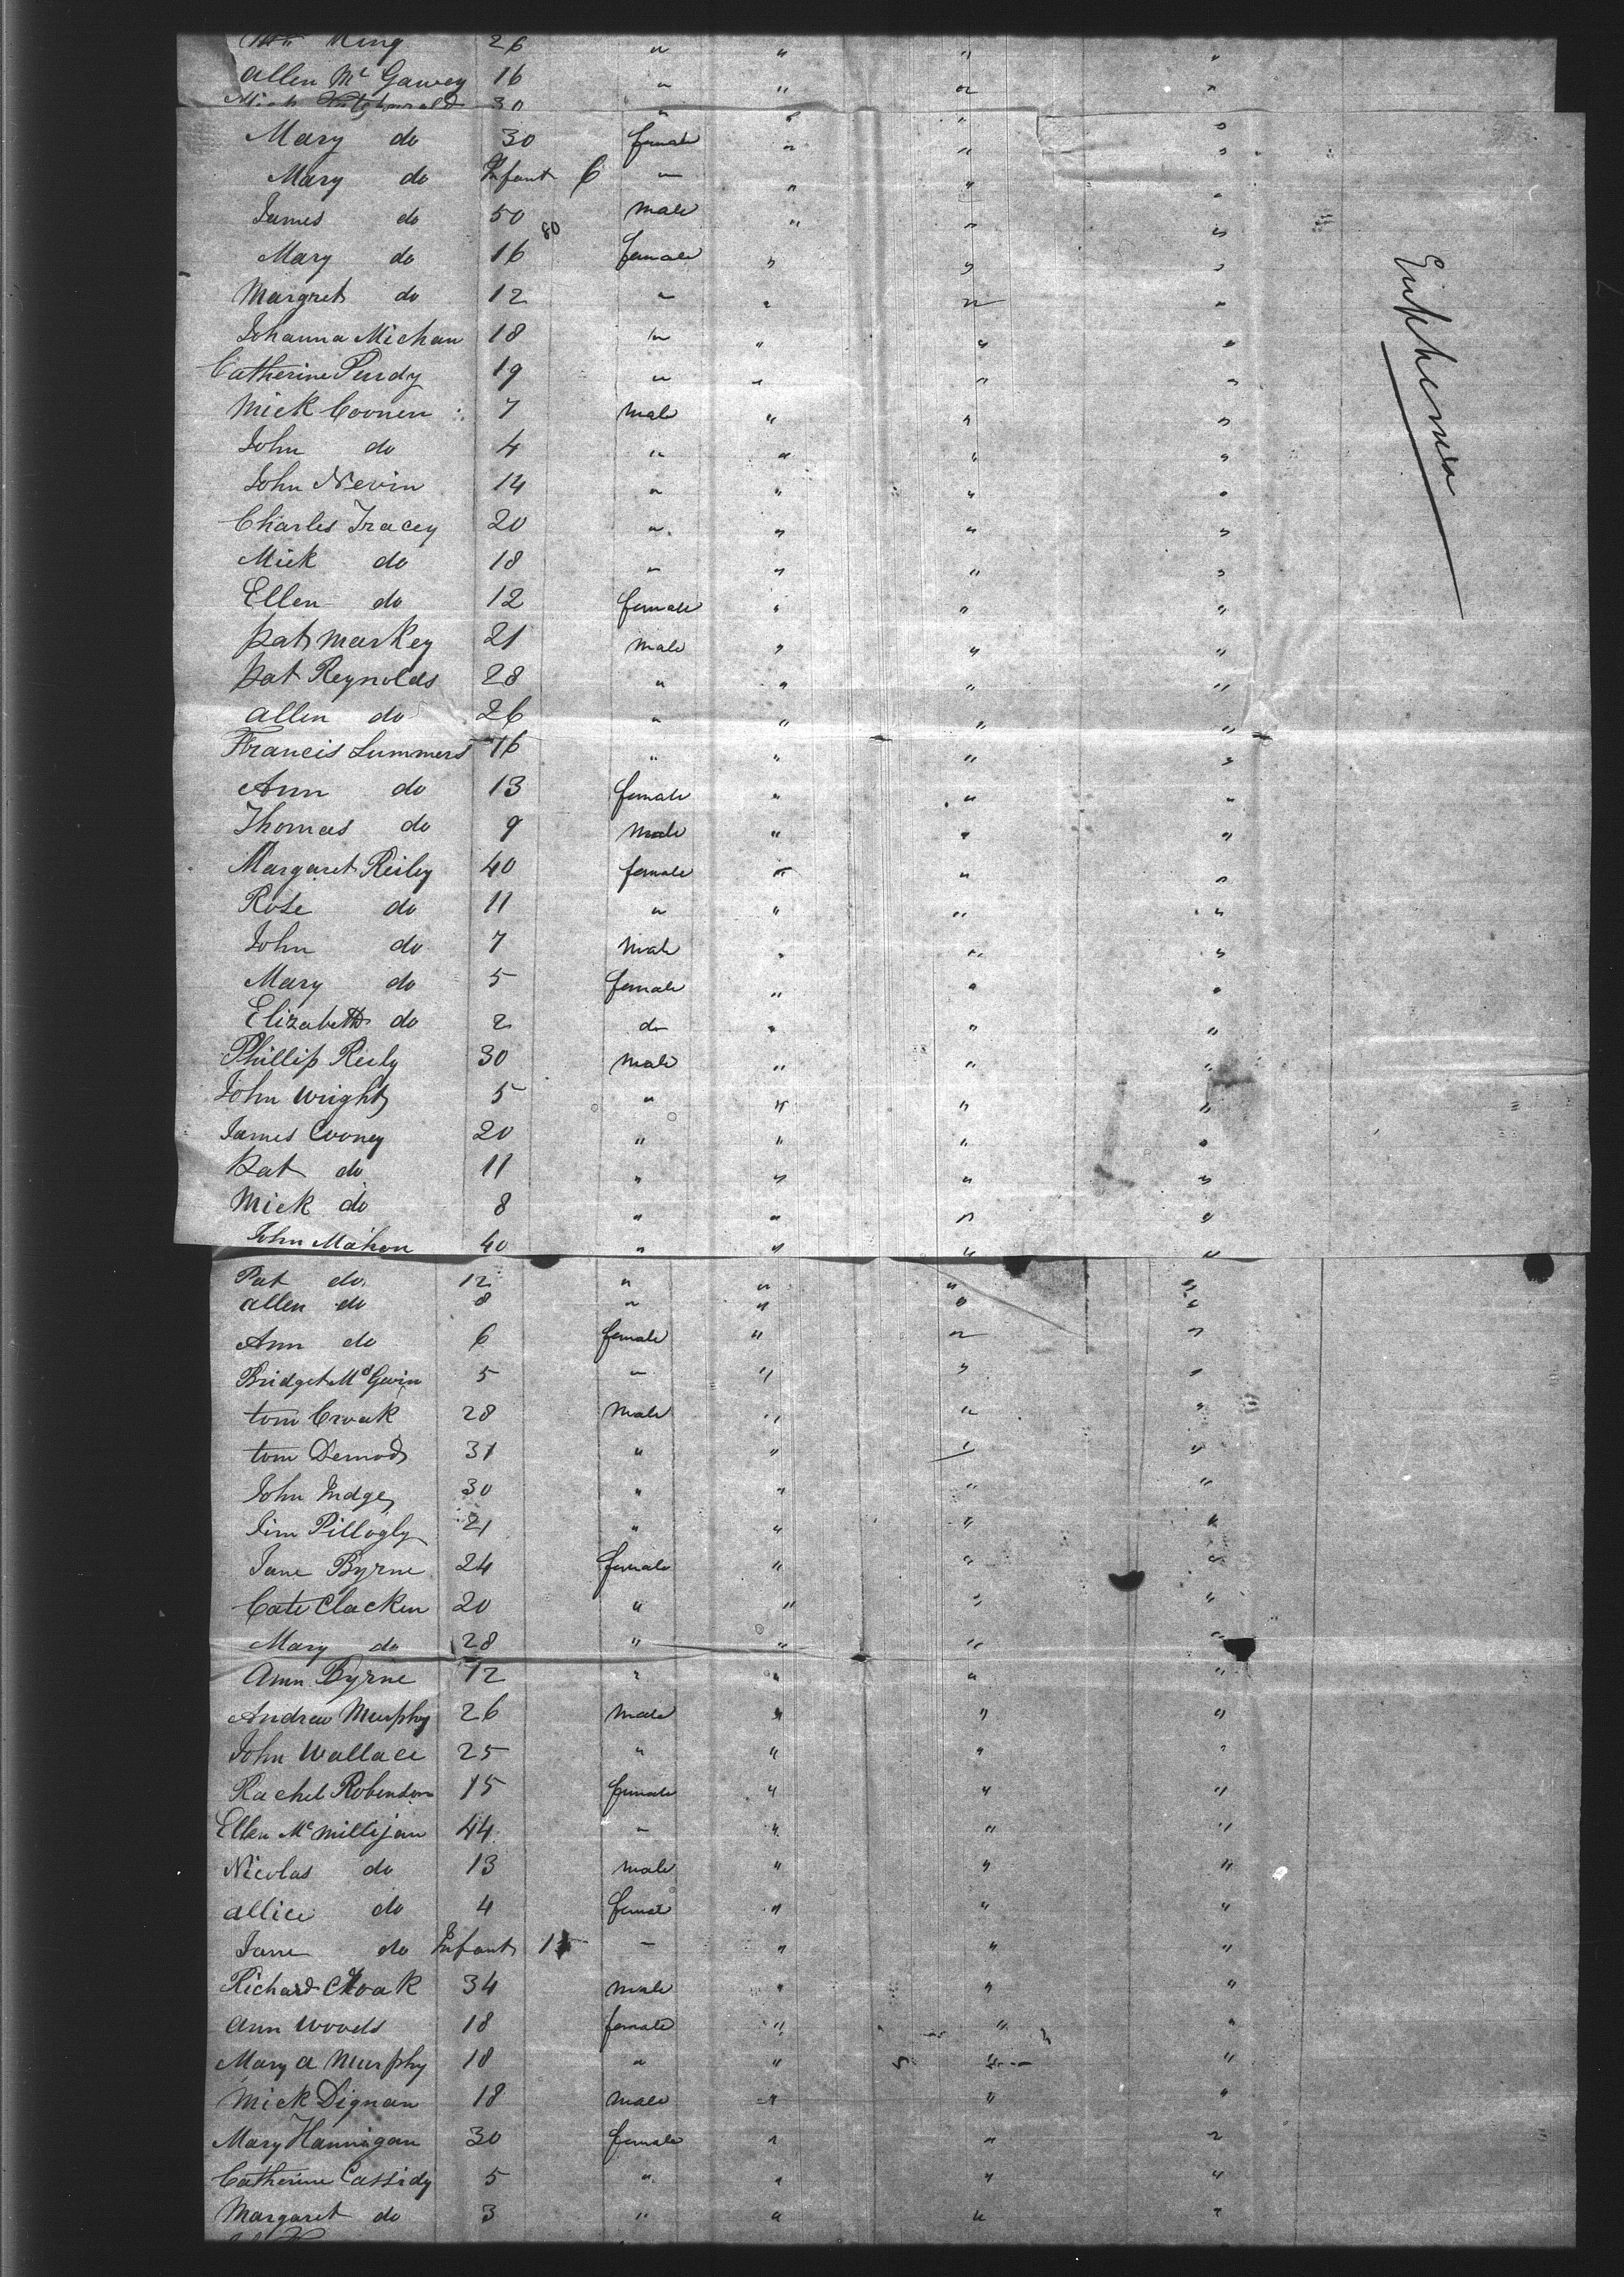 King 26 " " " "
Allen Mc Gawey 16 " " " "
Mich 30 " " " "
Mary do 30 female " " "
Mary do Infant 6 " " " "
James do 50 male " " "
80
Mary do 16 female " " "
Margret do 12 " " " "
Johanna Michan 18 " " " "
Catherine Purdy 19 " " " "
Mick Coonen 7 male " " "
John do 4 " " " "
John Nevin 14 " " " "
Charles Tracey 20 " " " "
Mick do 18 " " " "
Ellen do 12 female " " "
Pat Markey 21 male " " "
Pat Reynolds 28 " " " "
Allen do 26 " " " "
Francis Summers 16 " " " "
Ann do 13 female " " "
Thomas do 9 male " " "
Margaret Reiley 40 female " " "
Rose do 11 " " " "
John do 7 male " " "
Mary do 5 female " " "
Elizabeth do 2 do " " "
Phillip Reily 30 male " " "
John Wright 5 " " " "
James Cooney 20 " " " "
Pat do 11 " " " "
Mick do 8 " " " "
John Mahon 40 " " " "
Pat do 12 " " " "
Allen do 8 " " " "
Ann do 6 female " " "
Bridget Mc Gevin 5 " " " "
tom Croak 28 male " " "
tom Demod 31 " " " "
John 30 " " " "
Jim Pillogly 21 " " " "
Jane Byrne 24 female " " "
Cate Clacken 20 " " " "
Mary do 28 " " " "
Ann Byrne 12 " " " "
Andrew Murphy 26 male " " "
John Wallace 25 " " " "
Rachel Robinson 15 female " " "
Ellen Mc Millijan 44 " " " "
Nicolas do 13 male " " "
Allice do 4 female " " "
Jane do Infant " " " "
Richard Croak 34 male " " "
Ann Woods 18 female " " "
Mary A Murphy 18 " " " "
Mick Dignan 18 male " " "
Mary Hannigan 30 female " " "
Catherine Cassidy 5 " " " "
Margaret do 3 " " " "
Euphemia